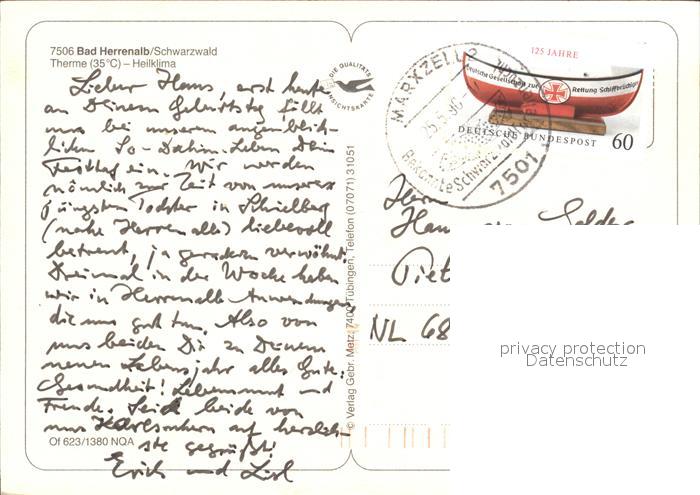 7506 Bad Herrenalb/Schwarzwald
Therme (35°C) – Heilklima
Lieber Hans, erst heute
an Deinem Geburtstag fällt
uns bei unserem augenblick-
lichen So-Dahin-Leben Dein
Festtag ein. Wir werden
nämlich zur Zeit von unserer
jüngsten Tochter in Schielberg
(nahe Herrenalb) liebevoll
betreut, ja geradezu verwöhnt.
Dreimal in der Woche haben
wir in Herrenalb Anwendungen,
die uns gut tun. Also von
uns beiden Dir zu Deinem
neuen Lebensjahr alles Gute:
Gesundheit! Lebensmut und
Freude. Seid beide von
uns auf herzlich-
ste gegrüßt!
Erich und Lisl
Of 623/1380 NQA
DIE QUALITÄTS
ANSICHTSKARTE
© Verlag Gebr. Metz, 7400 Tübingen, Telefon (07071) 31051
MARXZELL 2
25.5.90
7501
125 JAHRE
Deutsche Gesellschaft zur Rettung Schiffbrüchiger
DEUTSCHE BUNDESPOST
60
Herrn
Han
Piet
NL 68
privacy protection
Datenschutz